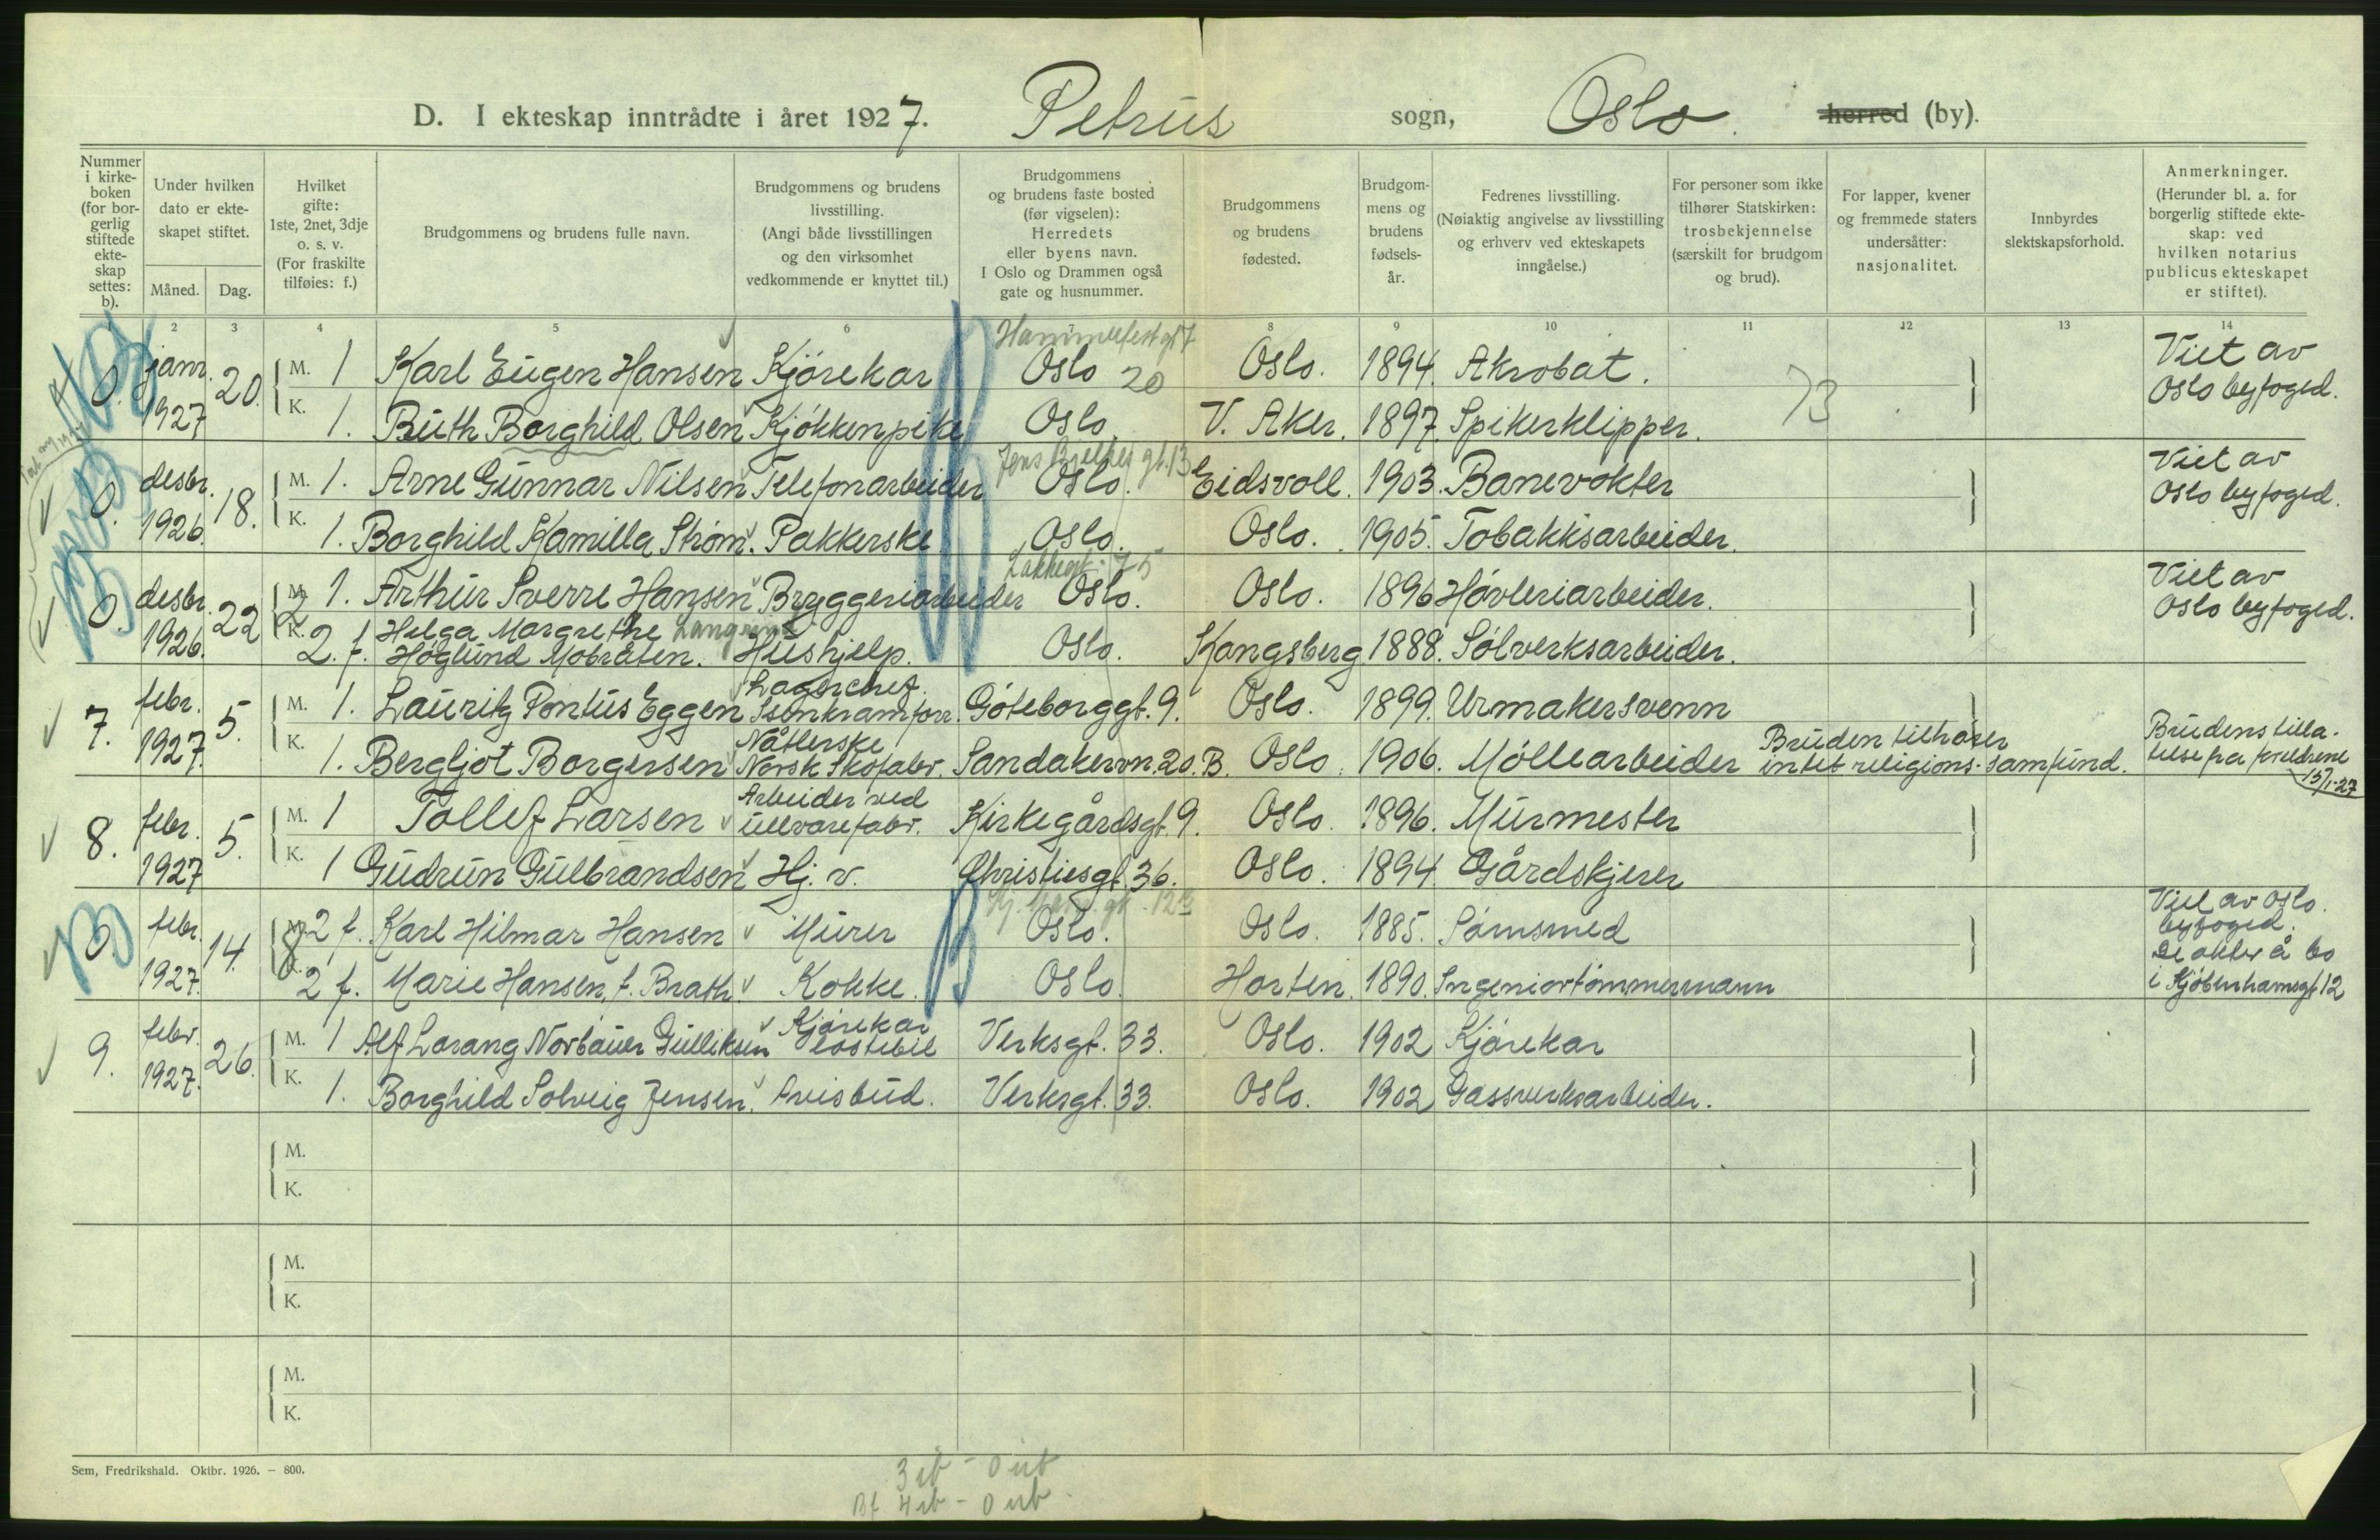 D. I ekteskap inntrådte i året 1927. Petrus sogn, Oslo. herred (by).
Nummer i kirkeboken (for borgerlig stiftede ekteskap settes: b).
Under hvilken dato er ekteskapet stiftet.
Måned. Dag.
Hvilket gifte: 1ste, 2net, 3dje o. s. v. (For fraskilte tilføies: f.)
Brudgommens og brudens fulle navn.
Brudgommens og brudens livsstilling. (Angi både livsstillingen og den virksomhet vedkommende er knyttet til.)
Brudgommens og brudens faste bosted (før vigselen): Herredets eller byens navn. I Oslo og Drammen også gate og husnummer.
Brudgommens og brudens fødested.
Brudgommens og brudens fødselsår.
Fedrenes livsstilling. (Nøiaktig angivelse av livsstilling og erhverv ved ekteskapets inngåelse.)
For personer som ikke tilhører Statskirken: trosbekjennelse (særskilt for brudgom og brud).
For lapper, kvener og fremmede staters undersåtter: nasjonalitet.
Innbyrdes slektskapsforhold.
Anmerkninger. (Herunder bl. a. for borgerlig stiftede ekteskap: ved hvilken notarius publicus ekteskapet er stiftet).
1 2 3 4 5 6 8 9 10 11 12 13 14
Hammerfestgt 7
0. janr. 1927 20. M. 1 Karl Eugen Hansen Kjørekar Oslo 20 Oslo. 1894. Akrobat. 73 Viet av Oslo byfoged.
K. 1. Ruth Borghild Olsen Kjøkkenpike Oslo V. Aker. 1897. Spikerklipper.
Jens Bjelkes gt. 13
0. desbr. 1926. 18. M. 1. Arne Gunnar Nilsen Telefonarbeider Oslo. Eidsvoll. 1903. Banevokter Viet av Oslo byfoged.
K. 1. Borghild Kamilla Strøm. Pakkerske Oslo. Oslo. 1905. Tobakksarbeider.
Lakkegt. 75
0. desbr. 1926. 22 M. 1. Arthur Sverre Hansen Bryggeriarbeider Oslo. Oslo. 1896 Høvleriarbeider. Viet av Oslo byfoged.
K. 2. f. Helga Margrethe Høglund Mobråten. Hushjelp. Oslo. Kongsberg 1888. Sølverksarbeider.
7. febr. 1927. 5. M. 1. Lauritz Pontus Eggen Lagerchef. Isenkramforr. Göteborggt. 9. Oslo. 1899. Urmakersvenn
K. 1. Bergljot Borgersen Nåtlerske Norsk Skofabr. Sandakervn. 20. B. Oslo. 1906. Møllearbeider Bruden tilhører intet religions-samfund. Brudens tillatelse fra foreldrene 15/1-27
8. febr. 1927 5. M. 1 Tollef Larsen Arbeider ved ullvarefabr. Kirkegårdsgt. 9. Oslo. 1896. Murmester
K. 1 Gudrun Gulbrandsen Hj. v. Christiesgt. 36. Oslo. 1894. Gårdskjerer
0. febr. 1927. 14. M. 2 f. Karl Hilmar Hansen Murer Oslo. Oslo. 1885. Sømsmed Viet av Oslo byfoged. De akter å bo i Kjøbenhavnsgt 12
K. 2 f. Marie Hansen, f. Brath. Kokke. Oslo. Horten. 1890. Ingeniørtømmermann
9. febr. 1927. 26. M. 1 Alf Lorang Norbauer Gulliksen Kjørekar lastebil Verksgt. 33. Oslo. 1902 Kjørekar
K. 1. Borghild Solveig Jensen. Avisbud. Verksgt. 33. Oslo. 1902 Gassverksarbeider.
M.
K.
M.
K.
M.
K.
Sem, Fredrikshald. Oktbr. 1926. – 800.
3 ub - 0 ub
Bf 4 ub - 0 ub.